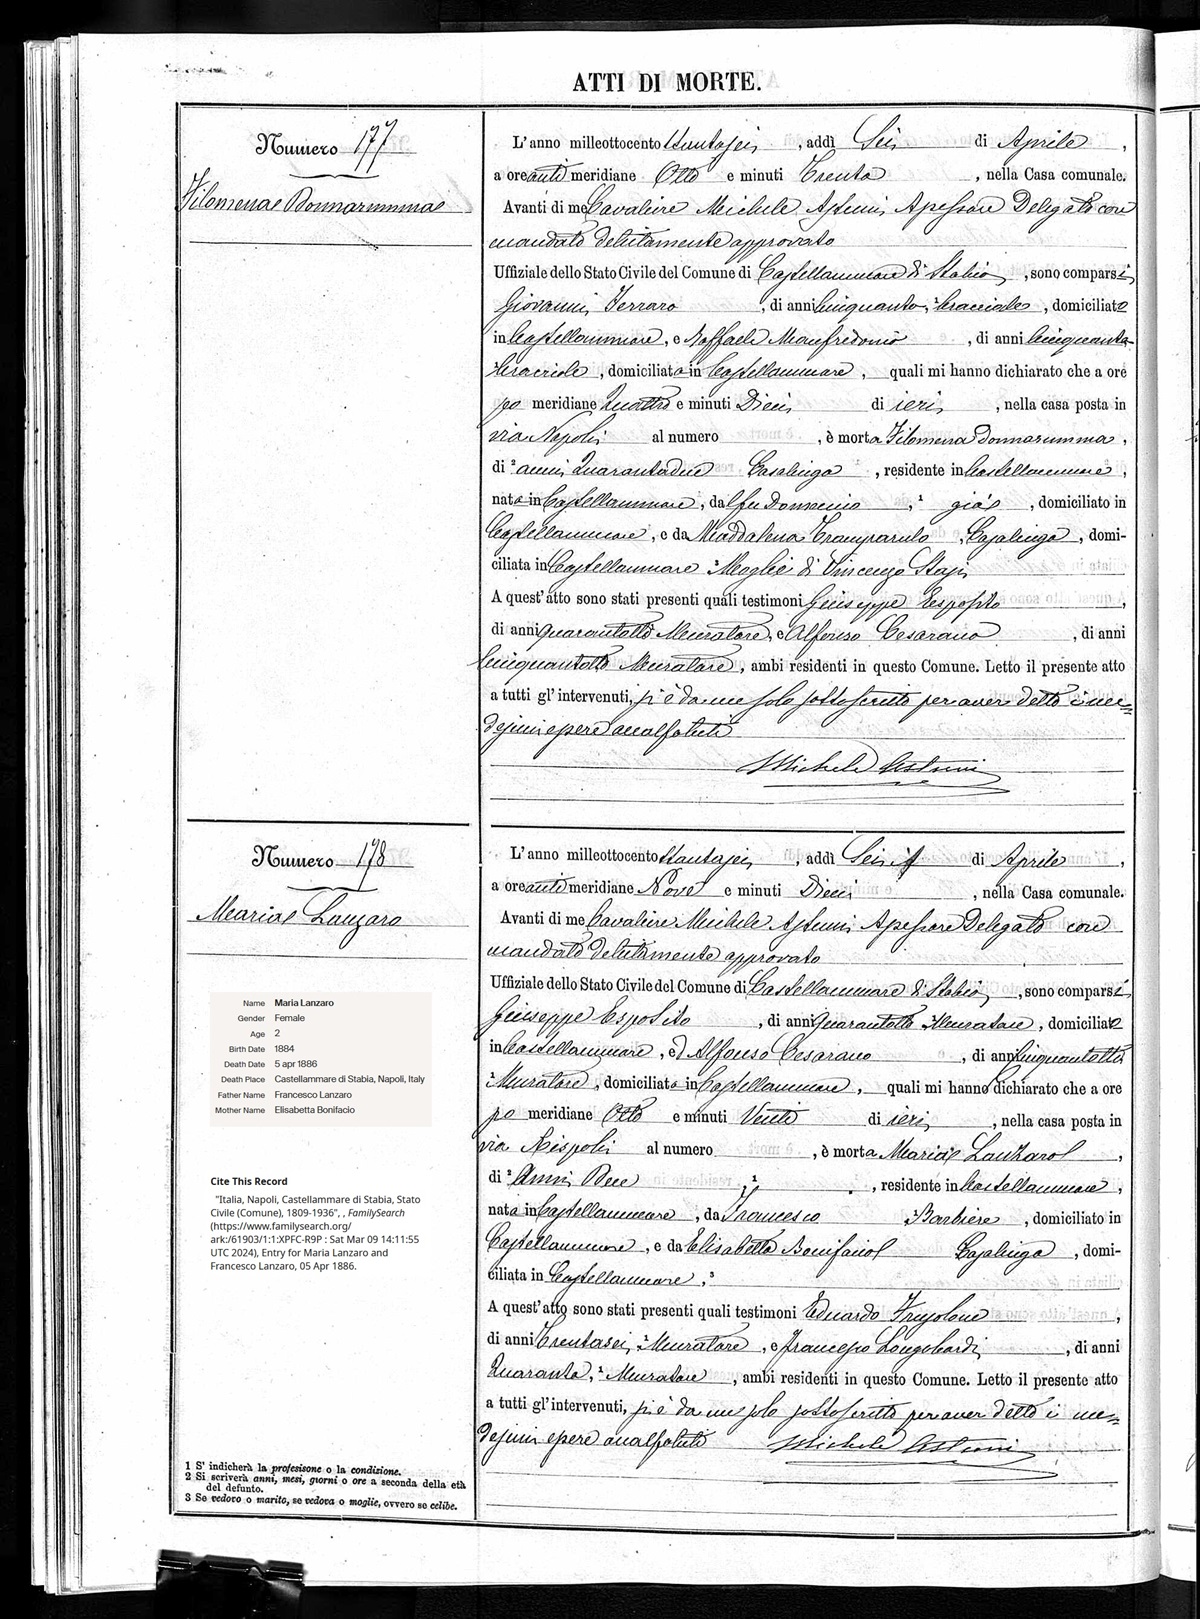 ATTI DI MORTE.
Numero 177
Filomena Donnarumma
L'anno milleottocento ttantasei, addì Sei di Aprile,
a ore anti meridiane Otto e minuti Trenta, nella Casa comunale.
Avanti di me Cavaliere Michele Astuni Assessore Delegato con
mandato debitamente approvato
Uffiziale dello Stato Civile del Comune di Castellammare di Stabia, sono comparsi
Giovanni Ferraro, di anni cinquanta, bracciale, domiciliato
in Castellammare, e Raffaele Manfredonio, di anni cinquanta
bracciale, domiciliato in Castellammare, quali mi hanno dichiarato che a ore
po meridiane quattro e minuti Dieci di ieri, nella casa posta in
via Napoli al numero, è morta Filomena Donnarumma,
di anni Quarantadue Casalinga, residente in Castellammare,
nata in Castellammare, dal fu Domenico, già, domiciliato in
Castellammare, e da Maddalena Tramparulo, Casalinga, domi-
ciliata in Castellammare Moglie di Vincenzo
A quest'atto sono stati presenti quali testimoni Giuseppe Esposito,
di anni quarantotto Muratore, e Alfonso Cesarano, di anni
Cinquantotto Muratore, ambi residenti in questo Comune. Letto il presente atto
a tutti gl'intervenuti, si è da me solo sottoscritto per aver detto i me=
desimi essere analfabeti
Michele Astuni
Numero 178
Maria Lanzaro
L'anno milleottocento ttantasei, addì Sei di Aprile,
a ore anti meridiane Nove e minuti Dieci, nella Casa comunale.
Avanti di me Cavaliere Michele Astuni Assessore Delegato con
mandato debitamente approvato
Uffiziale dello Stato Civile del Comune di Castellammare di Stabia, sono comparsi
Giuseppe Esposito, di anni quarantotto Muratore, domiciliato
in Castellammare, ed Alfonso Cesarano, di anni cinquantotto
Muratore, domiciliato in Castellammare, quali mi hanno dichiarato che a ore
po meridiane Otto e minuti Venti di ieri, nella casa posta in
via Rispoli al numero, è morta Maria Lanzaro,
di Anni Due, residente in Castellammare,
nata in Castellammare, da Francesco Barbiere, domiciliato in
Castellammare, e da Elisabetta Bonifacio Casalinga, domi-
ciliata in Castellammare,
A quest'atto sono stati presenti quali testimoni Eduardo,
di anni Trentasei, Muratore, e Francesco Longobardi, di anni
Quaranta, Muratore, ambi residenti in questo Comune. Letto il presente atto
a tutti gl'intervenuti, si è da me solo sottoscritto per aver detto i me=
desimi essere analfabeti Michele Astuni
Name Maria Lanzaro
Gender Female
Age 2
Birth Date 1884
Death Date 5 apr 1886
Death Place Castellammare di Stabia, Napoli, Italy
Father Name Francesco Lanzaro
Mother Name Elisabetta Bonifacio
Cite This Record
"Italia, Napoli, Castellammare di Stabia, Stato
Civile (Comune), 1809-1936", , FamilySearch
(https://www.familysearch.org/
ark:/61903/1:1:XPFC-R9P : Sat Mar 09 14:11:55
UTC 2024), Entry for Maria Lanzaro and
Francesco Lanzaro, 05 Apr 1886.
1 S' indicherà la profesisone o la condizione.
2 Si scriverà anni, mesi, giorni o ore a seconda della età
del defunto.
3 Se vedovo o marito, se vedova o moglie, ovvero se celibe.